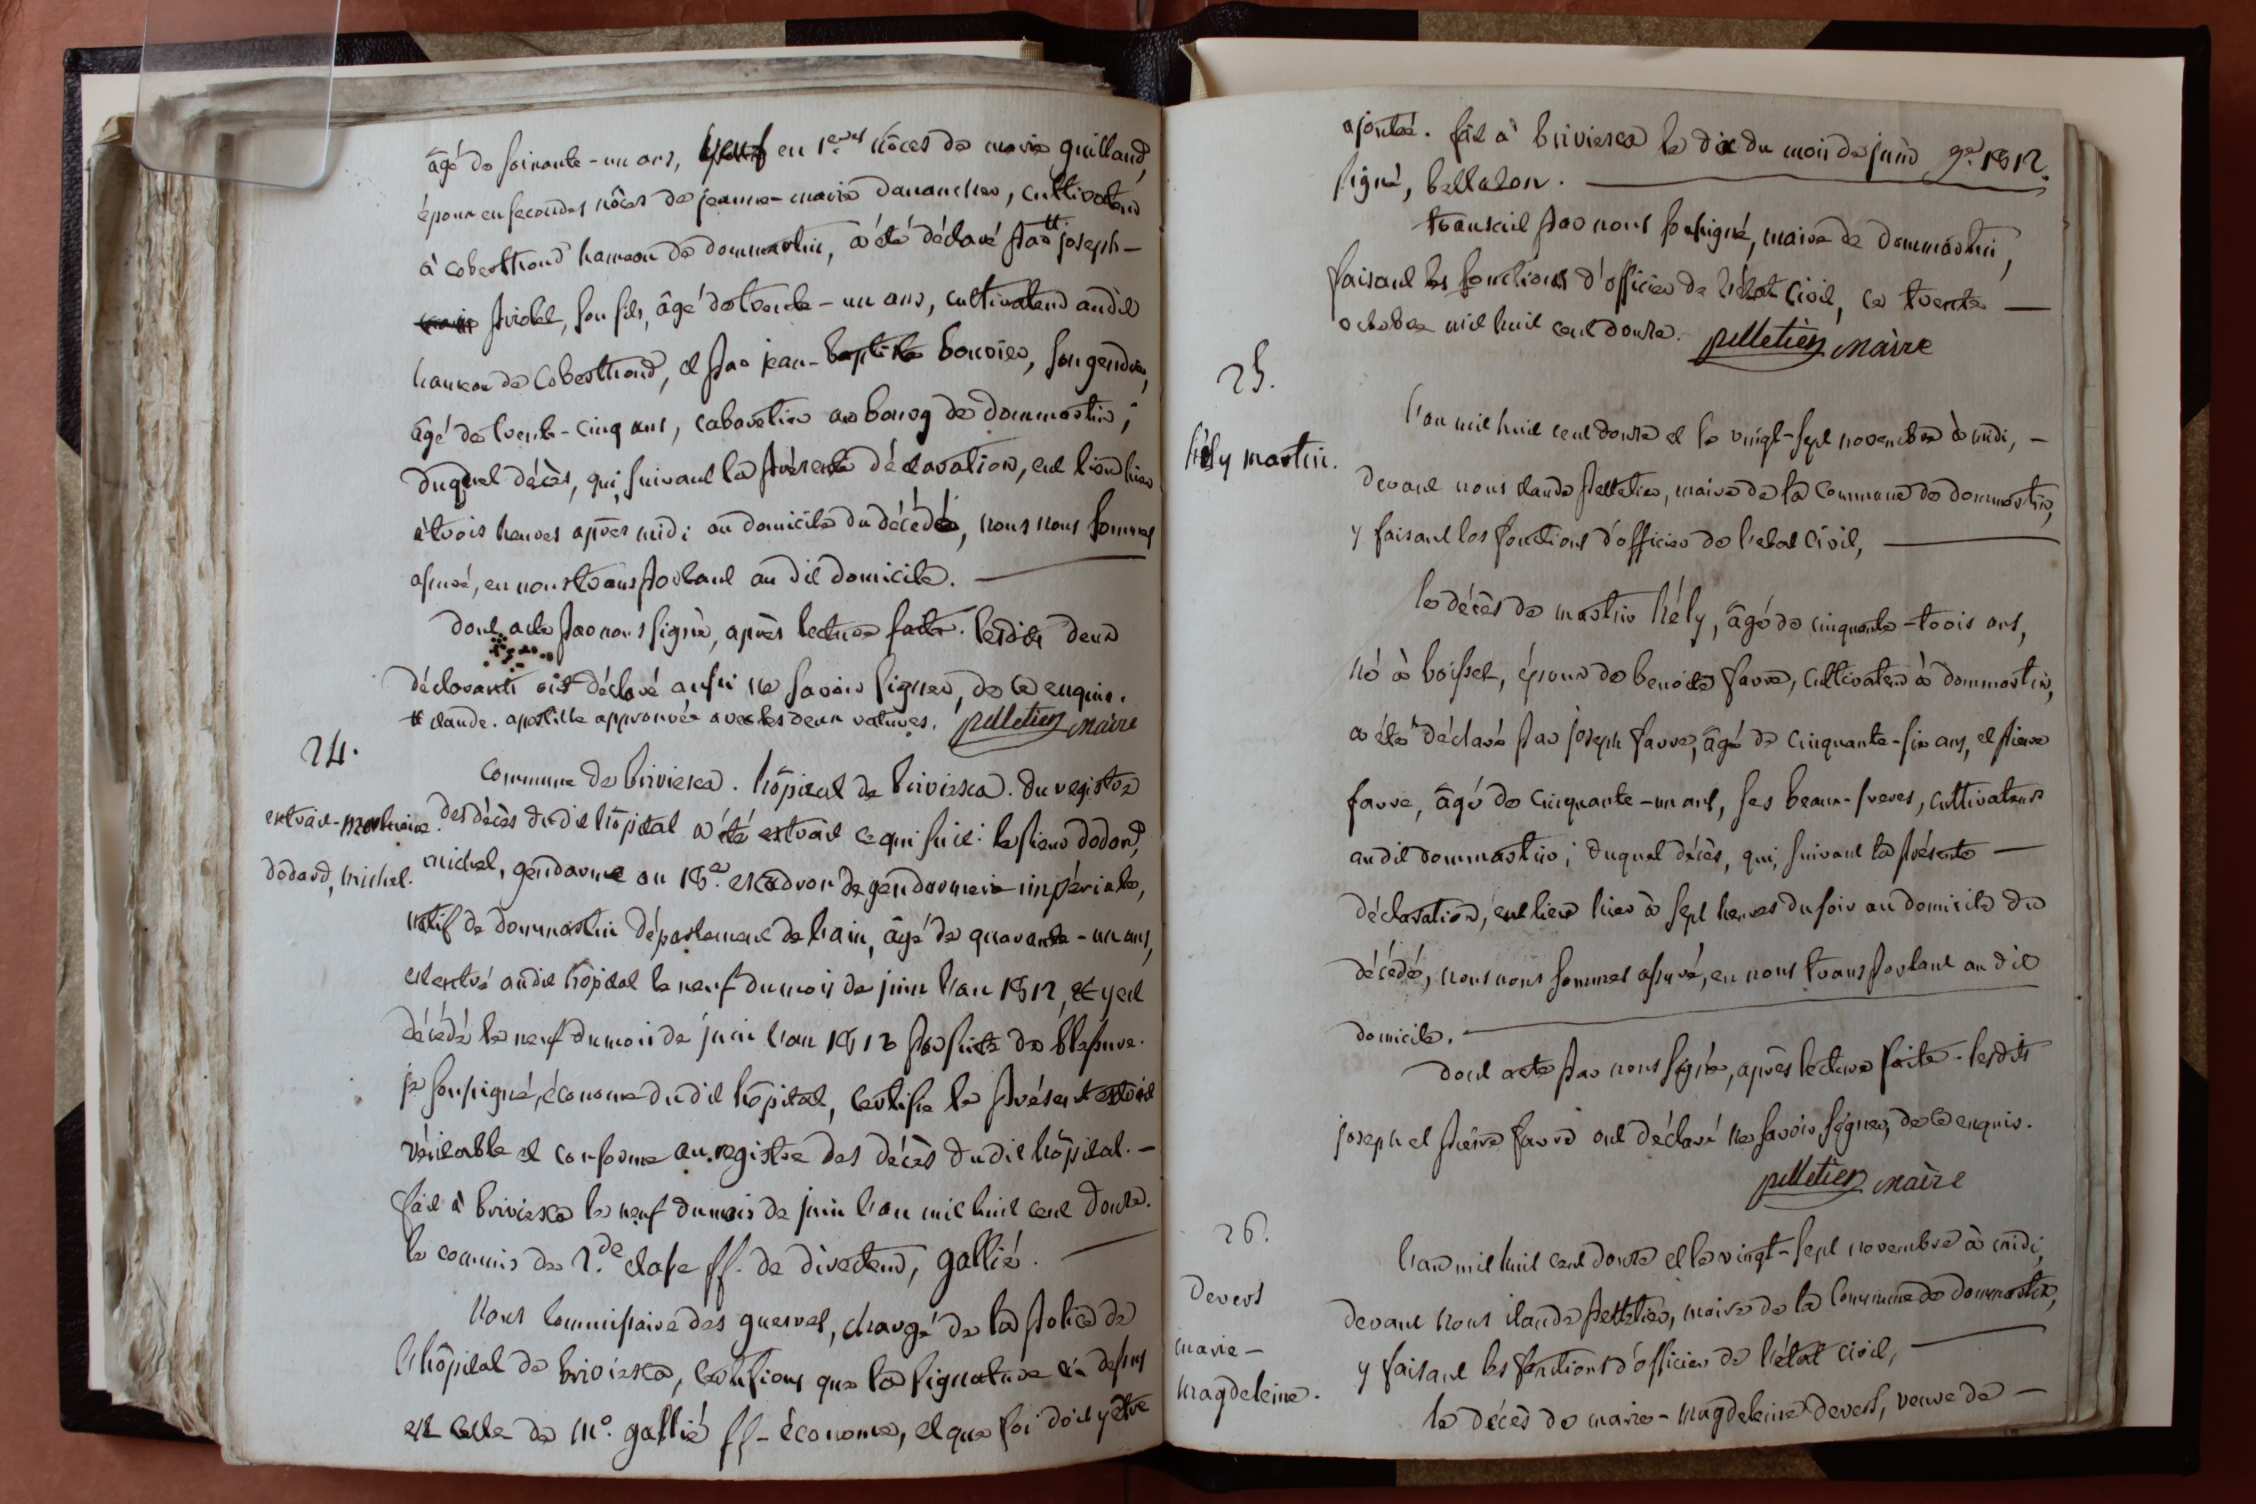 âgé de soixante-un ans, veuf en 1eres nôces de marie guilland,
époux en secondes nôces de jeanne-marie dananches, cultivateur
à coberthoud hameau de dommartin, a été déclaré par joseph-
priolet, son fils, âgé de trente-un ans, cultivateur audit
hameau de Coberthoud, et par jean-baptiste bouvier, son gendre,
âgé de trente-cinq ans, cabaretier au bourg de dommartin;
duquel décès, qui, suivant la présente déclaration, eut lieu hier
à trois heures après midi au domicile du décédé, nous nous sommes
assuré, en nous transportant au dit domicile.
dont acte par nous signé, après lecture faite. lesdits deux
déclarants ont déclaré aussi ne savoir signer, de ce enquis.
# claude. apostille approuvée avec les deux ratures. pelletier maire
24.
extrait-mortuaire
dodard, michel.
Commune de briviesca. hôpital de briviesca. du registre
des décès dudit hôpital a été extrait ce qui suit: le sieur dodard,
michel, gendarme au 18e. escadron de gendarmerie impériale,
natif de dommartin département de l'ain, âgé de quarante-un ans,
est entré audit hôpital le neuf du mois de juin l'an 1812, et y est
décédé le neuf du mois de juin l'an 1812 par suite de blessure.
je soussigné, économe dudit hôpital, certifie le présent extrait
véritable et conforme au registre des décès dudit hôpital. -
fait à briviesca le neuf du mois de juin l'an mil huit cent douze.
le commis de 2.de classe ff. de directeur, gallié.
Nous commissaire des guerres, chargé de la police de
l'hôpital de briviesca, certifions que la signature ci dessus
est celle de Mr. gallié ff-économe, et que foi doit y être
ajoutée. fait à briviesca le dix du mois de juin 1812.
signé, bellaton.
transcrit par nous soussigné, maire de dommartin,
faisant les fonctions d'officier de l'état civil, ce trente
octobre mil huit cent douze. pelletier maire
25.
hély martin.
l'an mil huit cent douze et le vingt-sept novembre à midi, -
devant nous claude pelletier, maire de la commune de dommartin,
y faisant les fonctions d'officier de l'état civil,
le décès de martin hély, âgé de cinquante-trois ans,
né à boisset, époux de benoite favre, cultivateur à dommartin,
a été déclaré par joseph favre, âgé de cinquante-six ans, et pierre
favre, âgé de cinquante-un ans, ses beaux-freres, cultivateurs
audit dommartin; duquel décès, qui, suivant la présente -
déclaration, eut lieu hier à sept heures du soir au domicile du
décédé, nous nous sommes assuré, en nous transportant au dit
domicile.
dont acte par nous signé, après lecture faite. lesdits
joseph et pierre favre ont déclaré ne savoir signer, de ce enquis.
pelletier maire
26.
devers
marie-
magdeleine.
l'an mil huit cent douze et le vingt-sept novembre à midi,
devant nous claude pelletier, maire de la Commune de dommartin,
y faisant les fonctions d'officier de l'état civil,
le décès de marie-magdeleine devers, veuve de -